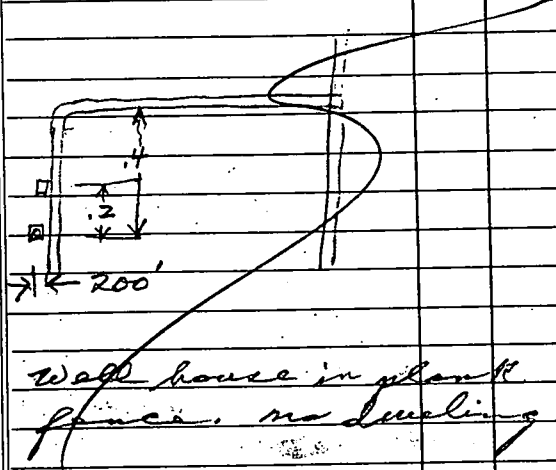 .4
.2
200'
Well house in plank
fence. no dweling